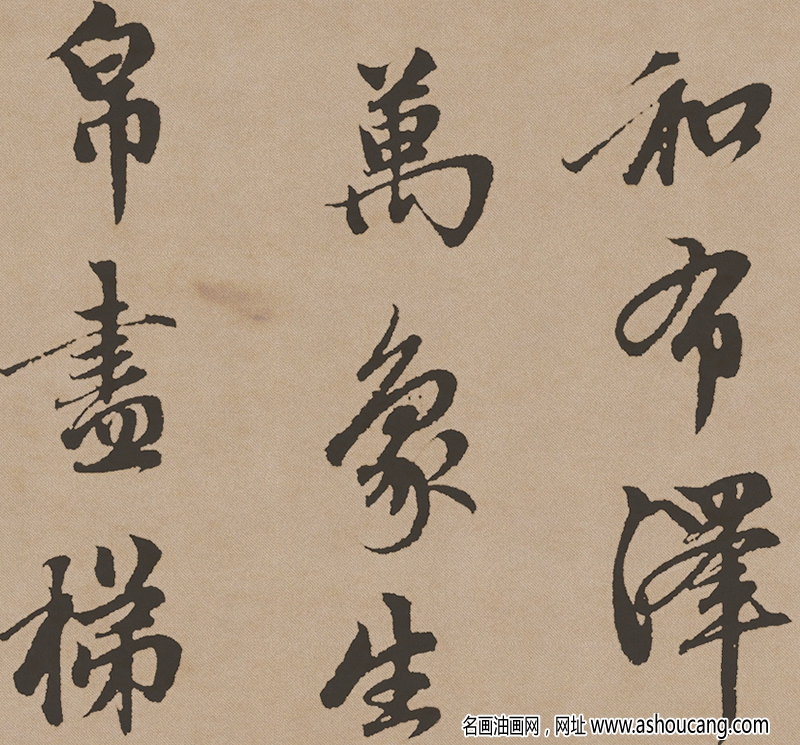 和布澤
萬象生
帛盡梯
名画油画网，网址 www.ashoucang.com